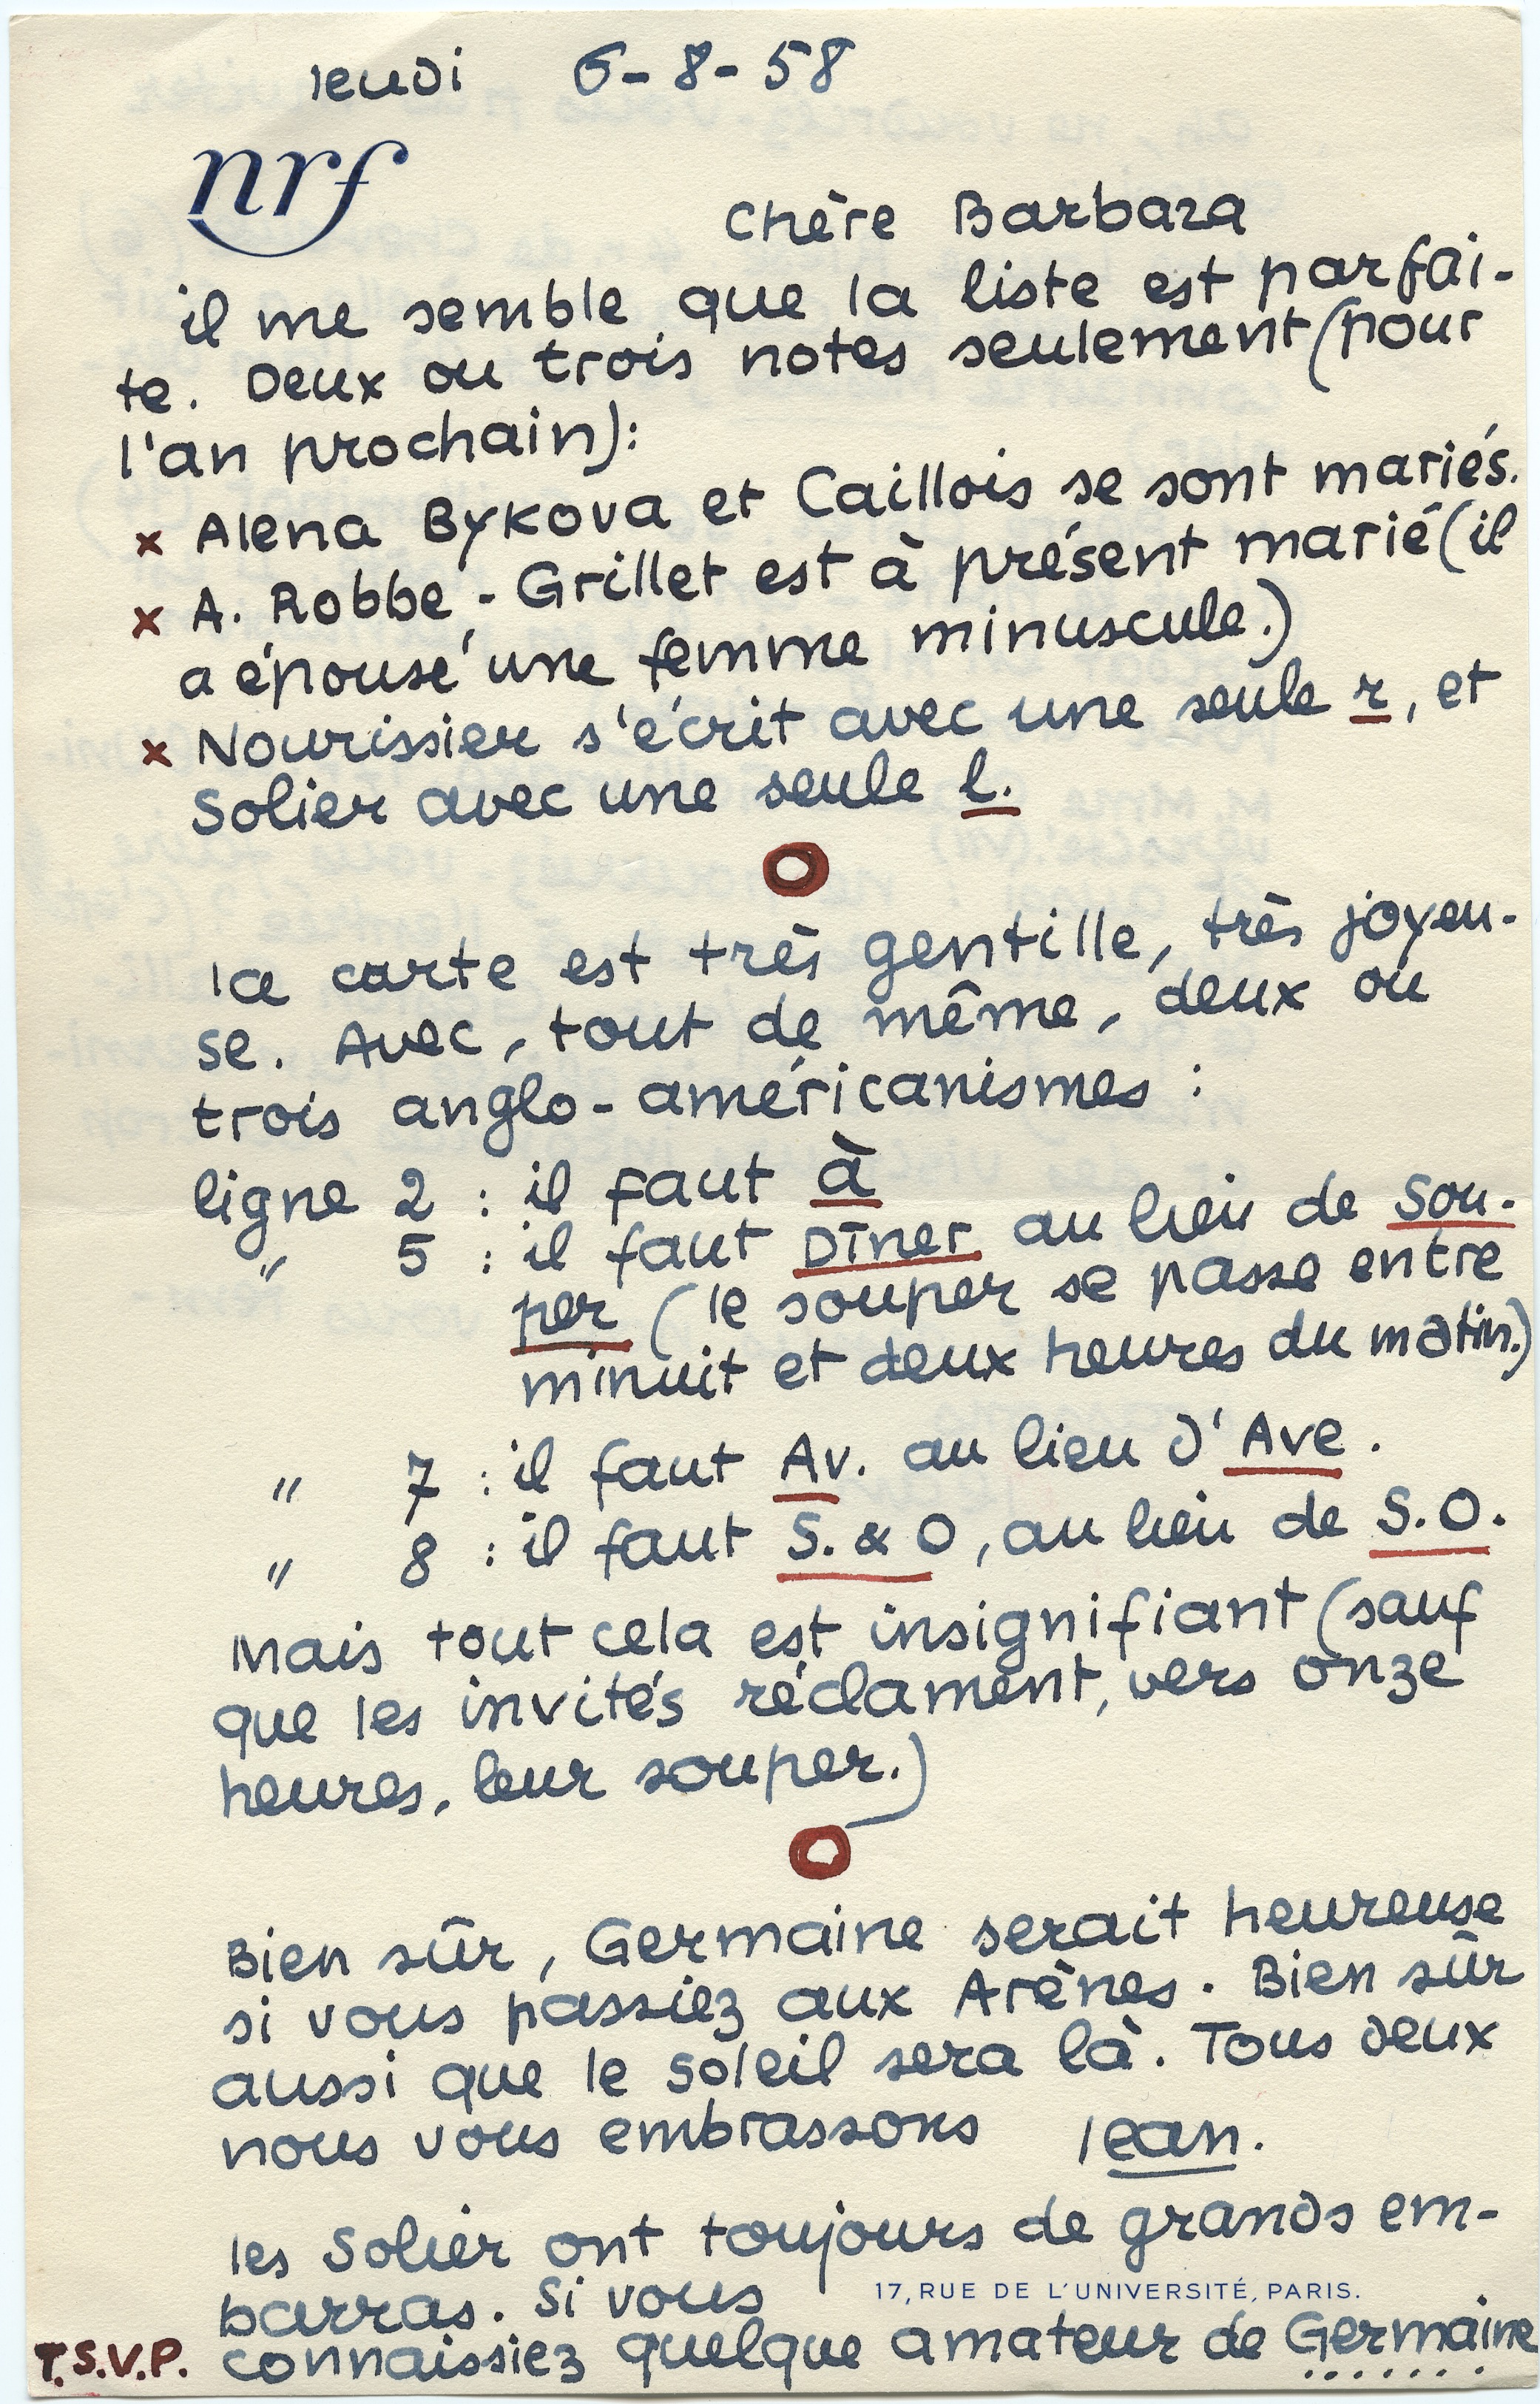 jeudi 6-8-58
nrf
Chère Barbara
il me semble que la liste est parfai-
te. Deux ou trois notes seulement (pour
l'an prochain):
x Alena Bykova et Caillois se sont mariés.
x A. Robbe-Grillet est à présent marié (il
a épousé une femme minuscule.)
x Nourissier s'écrit avec une seule r, et
Solier avec une seule l.
la carte est très gentille, très joyeu-
se. Avec, tout de même, deux ou
trois anglo-américanismes :
ligne 2 : il faut à
" 5 : il faut Dîner au lieu de Sou-
per (le souper se passe entre
minuit et deux heures du matin.)
" 7 : il faut Av. au lieu d'Ave.
" 8 : il faut S. & O, au lieu de S.O.
Mais tout cela est insignifiant (sauf
que les invités réclament, vers onze
heures, leur souper.)
Bien sûr, Germaine serait heureuse
si vous passiez aux Arènes. Bien sûr
aussi que le soleil sera là. Tous deux
nous vous embrassons Jean.
les Solier ont toujours de grands em-
barras. Si vous
17, RUE DE L'UNIVERSITÉ, PARIS.
T.S.V.P. connaissiez quelque amateur de Germaine